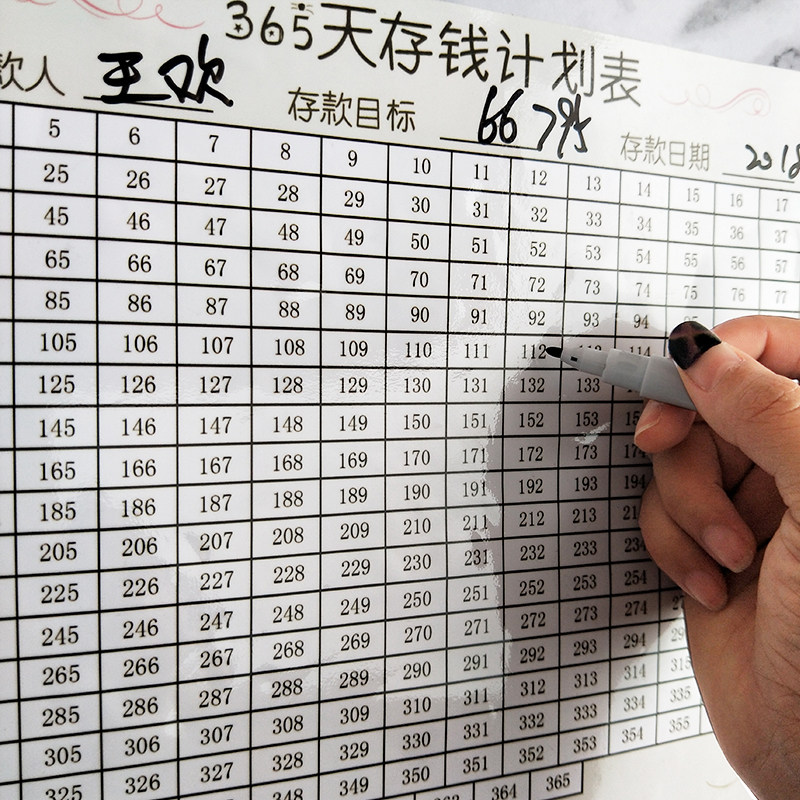 365天存钱计划表
款人 王欢 存款目标 66795 存款日期 2018
5 6 7 8 9 10 11 12 13 14 15 16 17
25 26 27 28 29 30 31 32 33 34 35 36 37
45 46 47 48 49 50 51 52 53 54 55 56 57
65 66 67 68 69 70 71 72 73 74 75 76 77
85 86 87 88 89 90 91 92 93 94
105 106 107 108 109 110 111 112 113 114
125 126 127 128 129 130 131 132 133
145 146 147 148 149 150 151 152 153
165 166 167 168 169 170 171 172 173 174
185 186 187 188 189 190 191 192 193 194
205 206 207 208 209 210 211 212 213
225 226 227 228 229 230 231 232 233 234
245 246 247 248 249 250 251 252 253 254
265 266 267 268 269 270 271 272 273 274
285 286 287 288 289 290 291 292 293 294
305 306 307 308 309 310 311 312 313 314 315
325 326 327 328 329 330 331 332 333 334 335
348 349 350 351 352 353 354 355
363 364 365